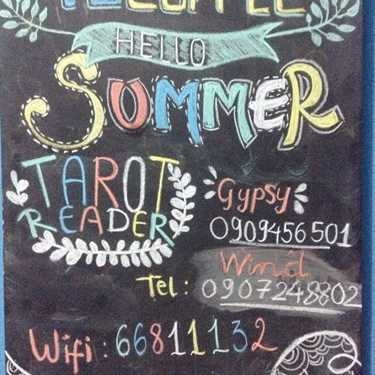 HELLO
SUMMER
TAROT
READER
Gypsy
0909456501
Wind
Tel: 0907248802
Wifi: 66811132